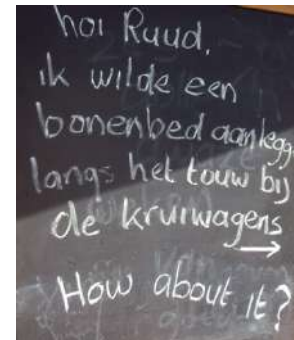 hoi Ruud,
ik wilde een
bonenbed aanlegg
langs het touw bij
de kruiwagens
How about it?